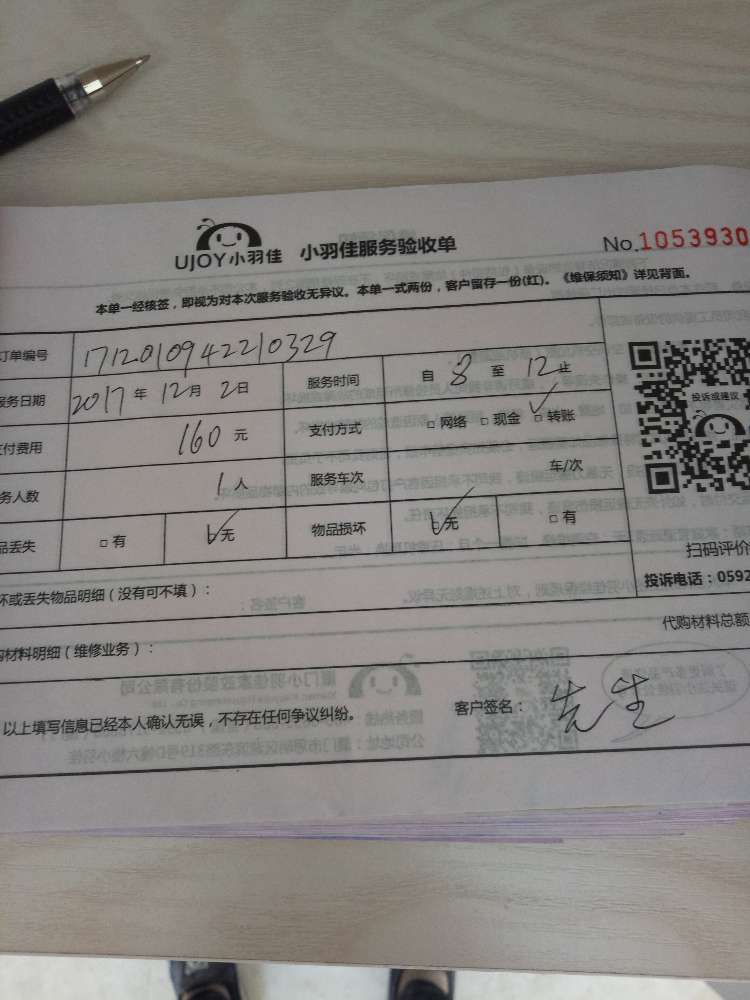 UJOY小羽佳 小羽佳服务验收单 No.1053930
本单一经核签，即视为对本次服务验收无异议。本单一式两份，客户留存一份(红)。《维保须知》详见背面。
订单编号 1712010942210329
服务日期 2017年12月2日 服务时间 自 8 至 12止
支付费用 160元 支付方式 □网络 □现金 □转账
投诉或建议
务人数 1人 服务车次 车/次
品丢失 □有 □无 物品损坏 □无 □有
扫码评价
坏或丢失物品明细（没有可不填）：
投诉电话：0592
代购材料总额
购材料明细（维修业务）：
以上填写信息已经本人确认无误，不存在任何争议纠纷。 客户签名：先生